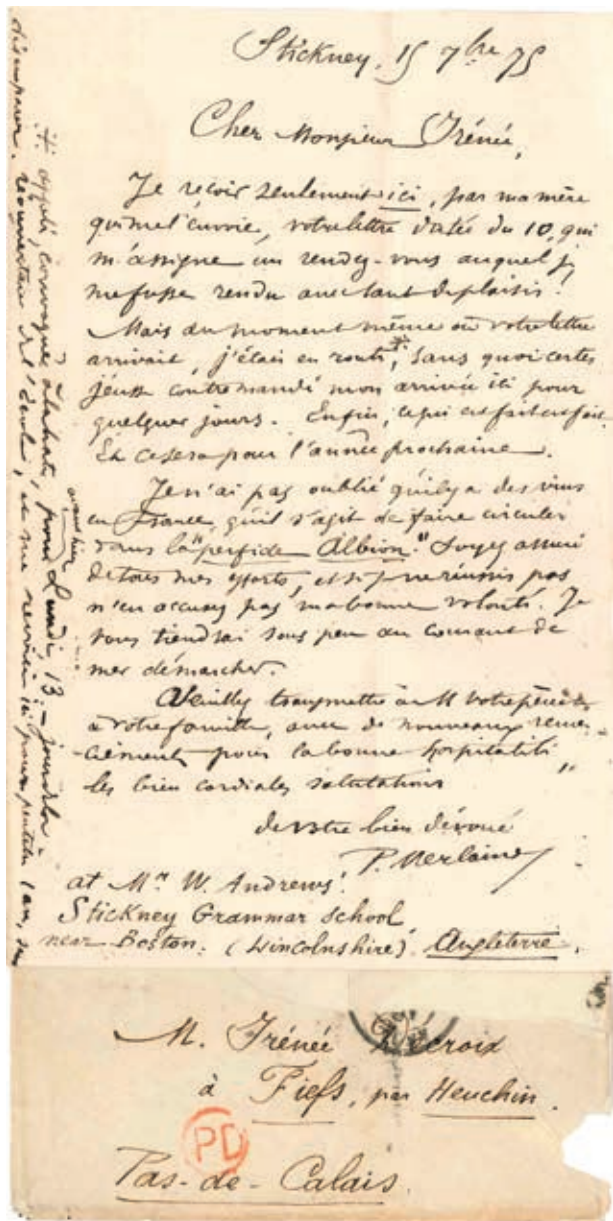 Stickney, 15 7bre 75
Cher Monsieur Irénée,
Je reçois seulement ici, par ma mère
qui me l'envoie, votre lettre datée du 10, qui
m'assigne un rendez-vous auquel je
me fusse rendu avec tant de plaisir !
Mais au moment même où votre lettre
arrivait, j'étais en route,* sans quoi certes
j'eusse contremandé mon arrivée ici pour
quelques jours. Enfin, ce qui est fait est fait.
Et ce sera pour l'année prochaine.
Je n'ai pas oublié qu'il y a des vins
en France qu'il s'agit de faire circuler
dans la "perfide Albion." Soyez assuré
de tous mes efforts, et si je ne réussis pas
n'en accusez pas ma bonne volonté. Je
vous tiendrai sous peu au courant de
mes démarches.
Veuillez transmettre à M votre père &
à votre famille, avec de nouveaux remer-
ciements pour la bonne hospitalité,
les bien cordiales salutations
de votre bien dévoué
P. Verlaine
at Mr W. Andrews'.
Stickney Grammar school
near Boston. (Lincolnshire) Angleterre.
* appelé, convoqué à la hâte, pour Lundi, 13. – jour de la
avant hier
réouverture de l'école, et me revoici ici pour peut-être 1 an, sans
désemparer.
M. Irénée Décroix
à Fiefs, par Heuchin.
PD
Pas-de-Calais.